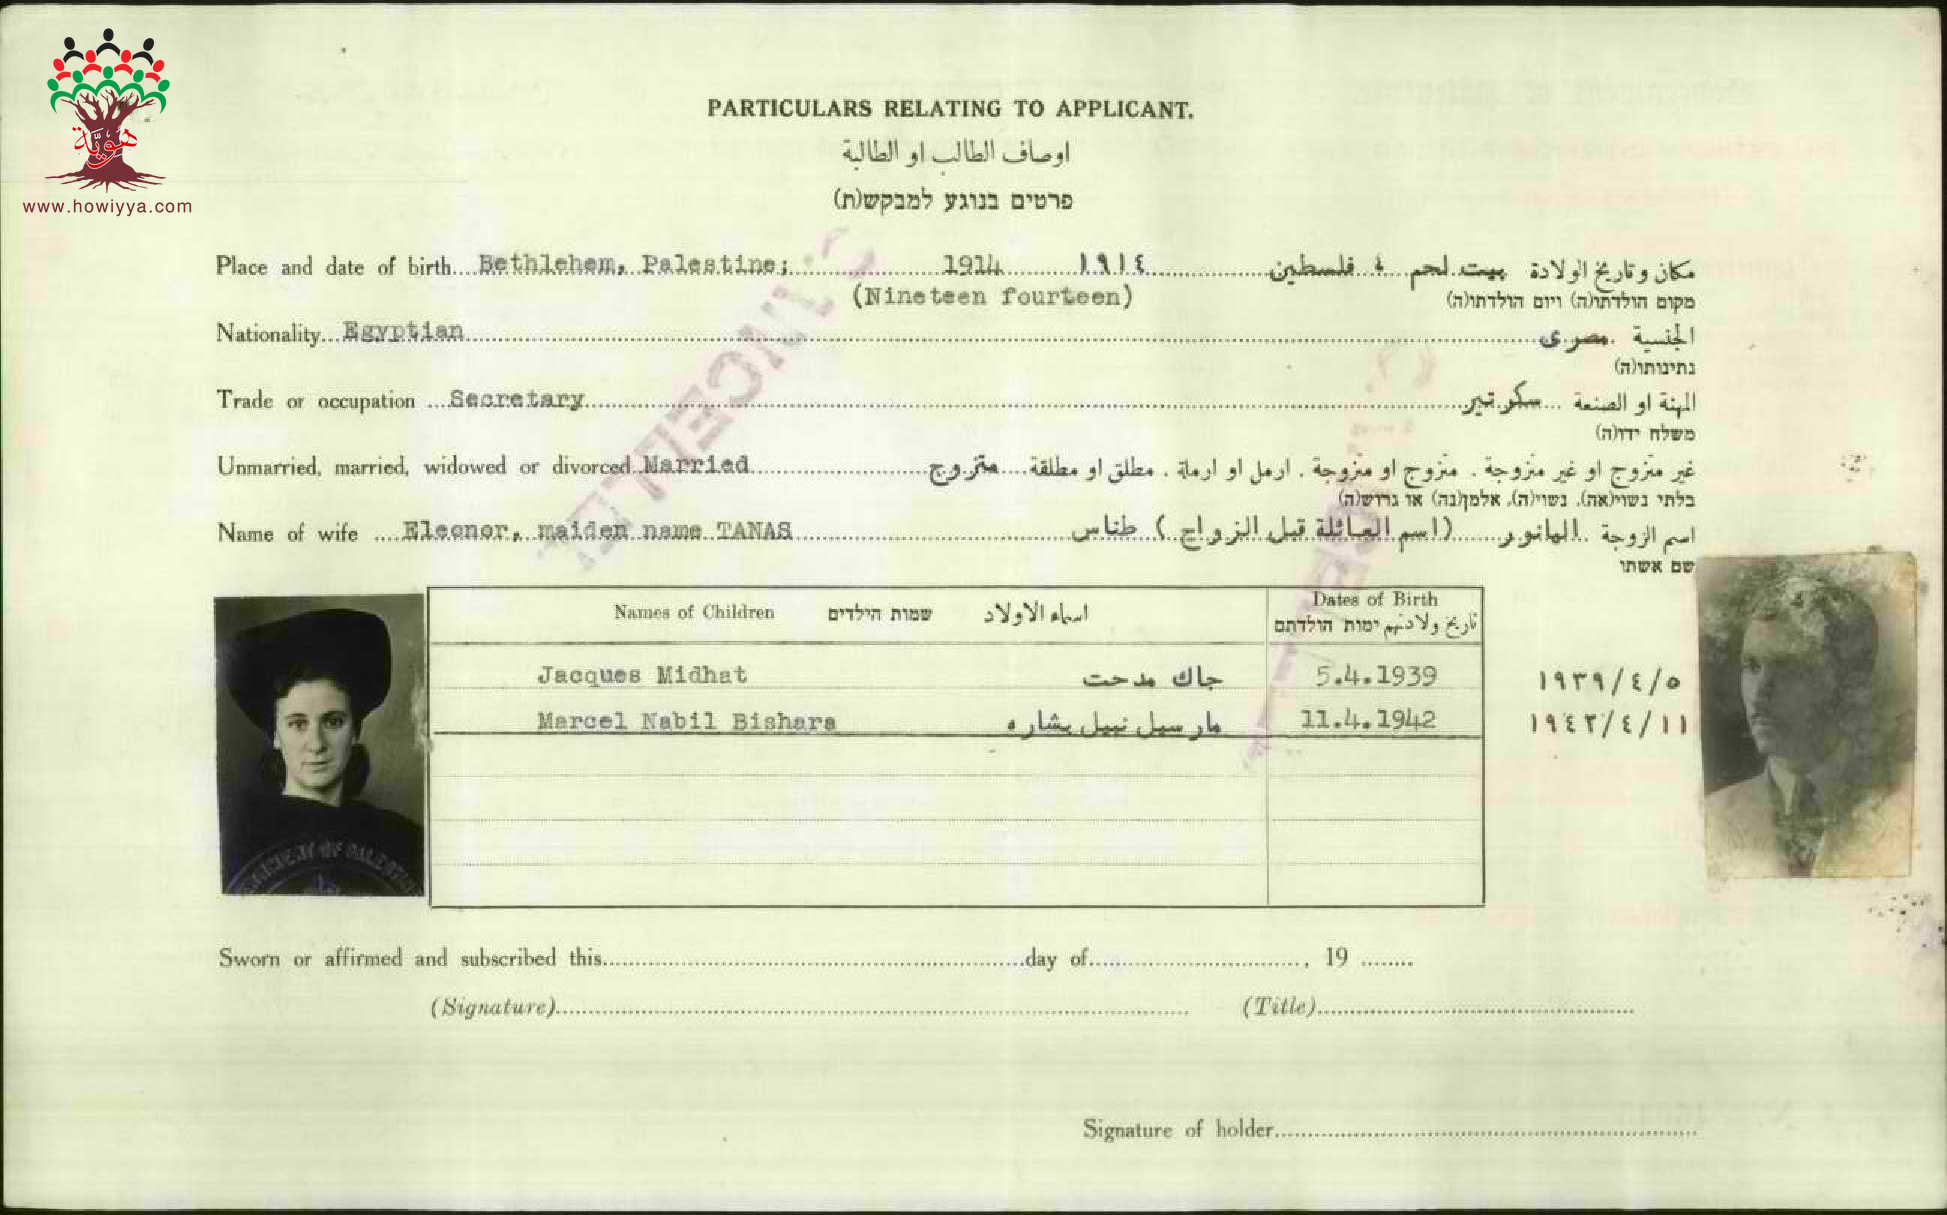 هوية
www.howiyya.com
PARTICULARS RELATING TO APPLICANT.
اوصاف الطالب او الطالبة
פרטים בנוגע למבקש(ת)
Place and date of birth... Bethlehem, Palestine; 1914 ١٩١٤ مكان وتاريخ الولادة بيت لحم ، فلسطين
(Nineteen fourteen) מקום הולדתו(ה) ויום הולדתו(ה)
Nationality... Egyptian الجنسية مصرى
נתינותו(ה)
Trade or occupation ... Secretary المهنة او الصنعة ... سكرتير
משלח ידו(ה)
Unmarried, married, widowed or divorced.. Married غير متزوج او غير متزوجة . متزوج او متزوجة . ارمل او ارملة . مطلق او مطلقة .... متزوج
בלתי נשוי(אה), נשוי(ה), אלמן(נה) או גרוש(ה)
Name of wife .... Eleonor, maiden name TANAS اسم الزوجة اليانور (اسم العائلة قبل الزواج ) طناس
שם אשתו
Names of Children שמות הילדים اسماء الاولاد Dates of Birth
تاريخ ولادتهم ימות הולדתם
Jacques Midhat جاك مدحت 5.4.1939 ١٩٣٩/٤/٥
Marcel Nabil Bishara مارسيل نبيل بشاره 11.4.1942 ١٩٤٢/٤/١١
CANCELLED
Sworn or affirmed and subscribed this... day of..., 19 ........
(Signature)... (Title)...
Signature of holder...